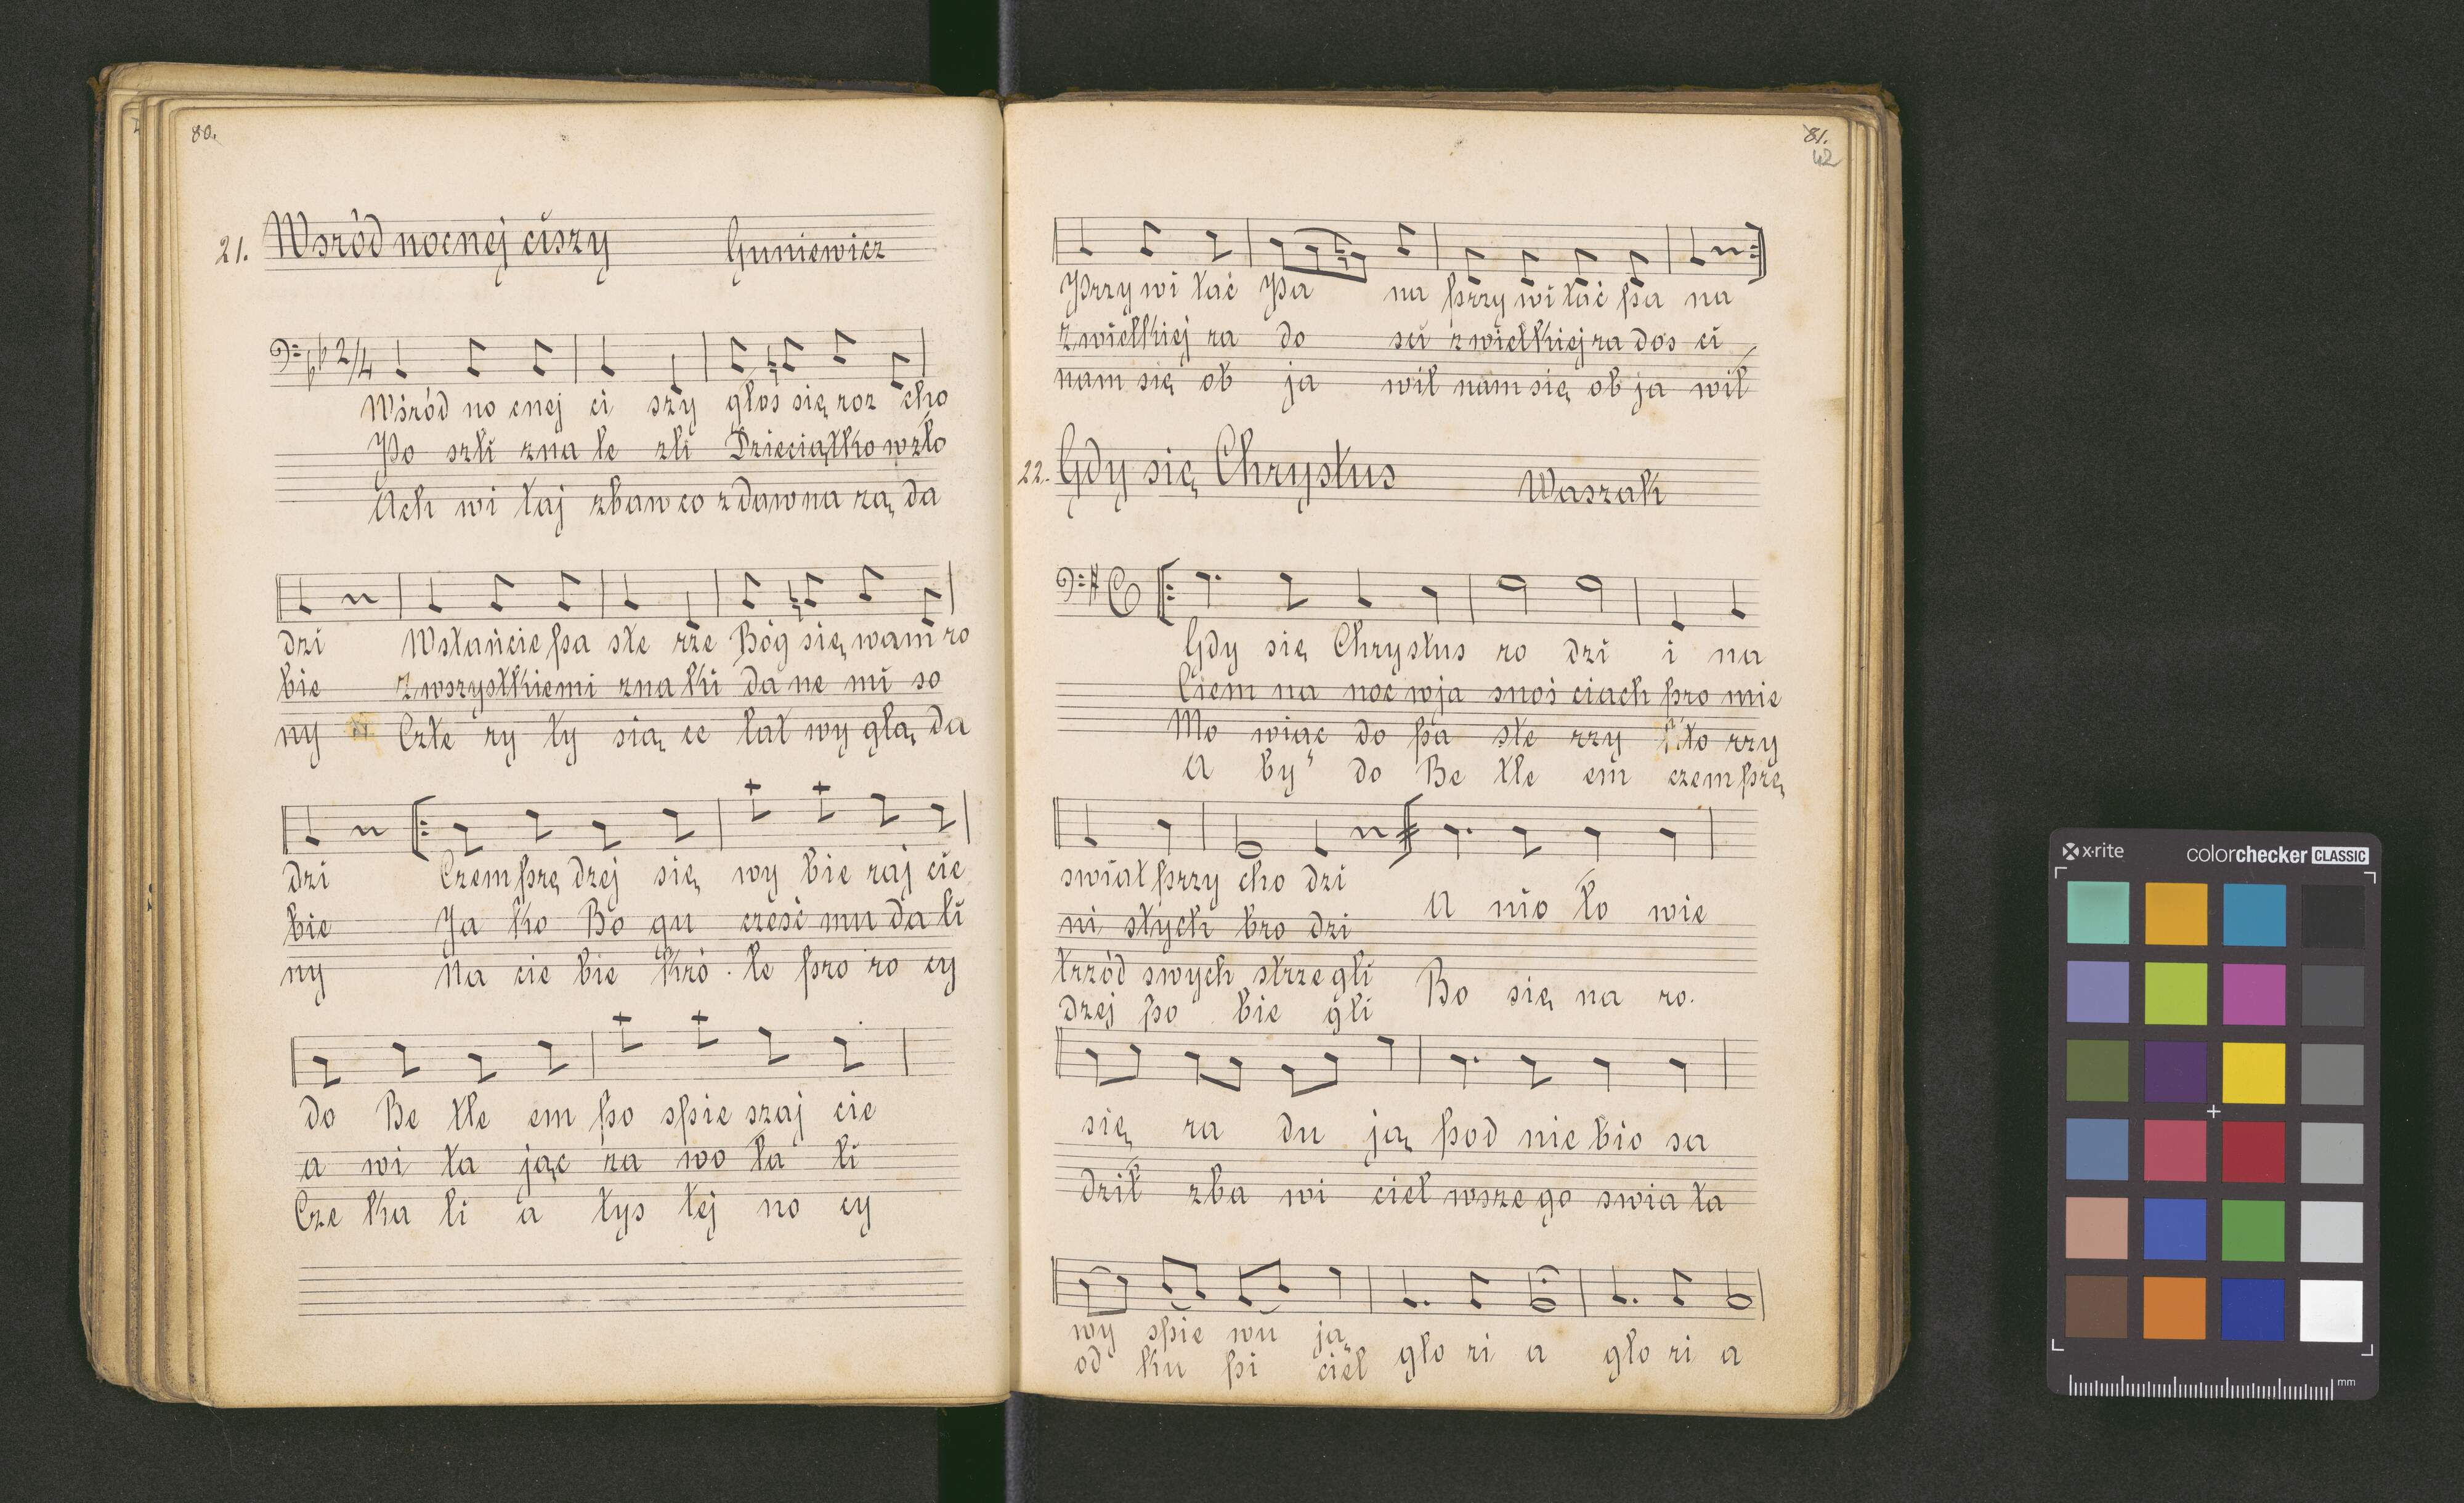 80.
21. Wsród nocnej ciszy Guniewicz
2/4
Wśród no cnej ci szy głos się roz cho
Po szli zna le zli Dzieciątko w żło
Ach wi taj zbaw co z dawna żą da
dzi Wstańcie pa ste rze Bóg się wam ro
bie Z wszystkiemi zna ki da ne mi so
ny Czte ry ty sią ce lat wy glą da
dzi Czem prę dzej się wy bie raj cie
bie Ja ko Bo gu cześć mu da li
ny Na cie bie kró le pro ro cy
do Be tle em po spie szaj cie
a wi ta jąc za wo ła li
Cze ka li a tyś tej no cy
81.
42
Przy wi tać Pa na przy wi tać pa na
z wielkiej ra do sci z wielkiej ra dos ci
nam się ob ja wił nam się ob ja wił
22. Gdy się Chrystus Waszak
Gdy się Chrystus ro dzi i na
Ciem na noc w ja snoś ciach pro mie
Mo wiąc do pa ste rzy któ rzy
a by do Be tle em czem prę
swiat przy cho dzi
ni stych bro dzi A nio ło wie
trzód swych strze gli
dzej po bie gli Bo się na ro.
się ra du ją pod nie bio sa
dził zba wi ciel wsze go swia ta
wy spie wu ją
od ku pi ciel glo ri a glo ri a
x·rite colorchecker CLASSIC
mm